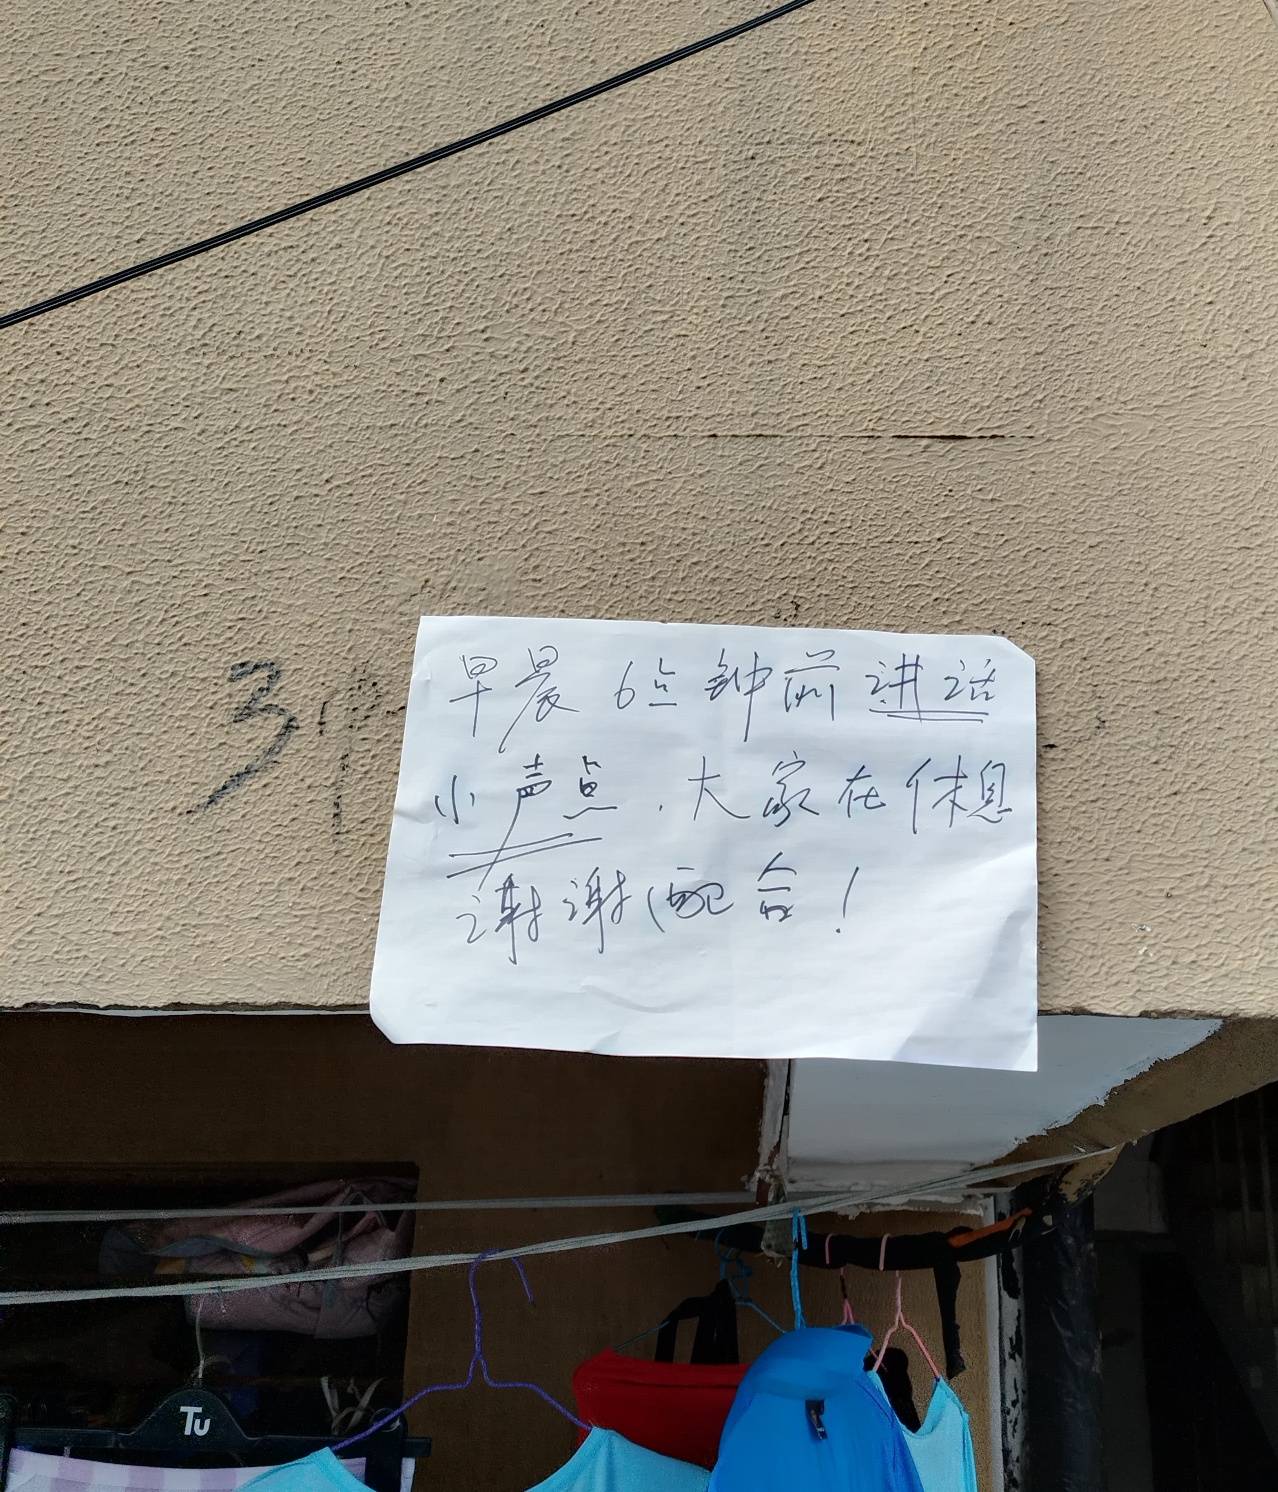 早晨 6点钟前 讲话
小声点.大家在休息
谢谢配合!
3
Tu